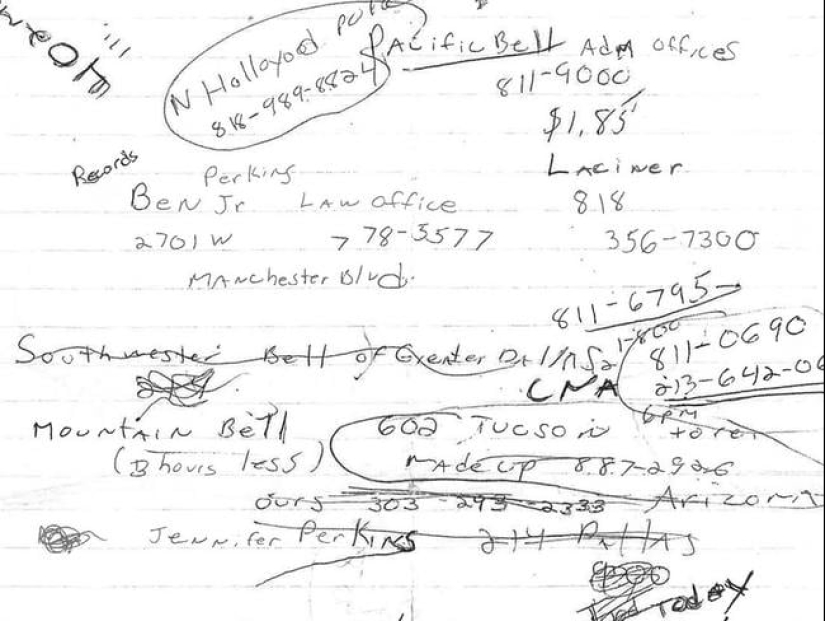 N Hollywood
818-989-8824
Pacific Bell Adm offices
811-9000
$1,85
Records
Perkins
Laciner
Ben Jr Law office
818
2701 W 778-5577
356-7300
Manchester Blvd.
811-6795
Southwester Bell of Greater Dallas
1-800
811-0690
CNA
213-642-06
6pm
Mountain Bell
602 Tucson
(3 hours less)
made up 887-2926
ours 303-293-2333 Arizona
Jennifer Perkins 214 Dallas
Today